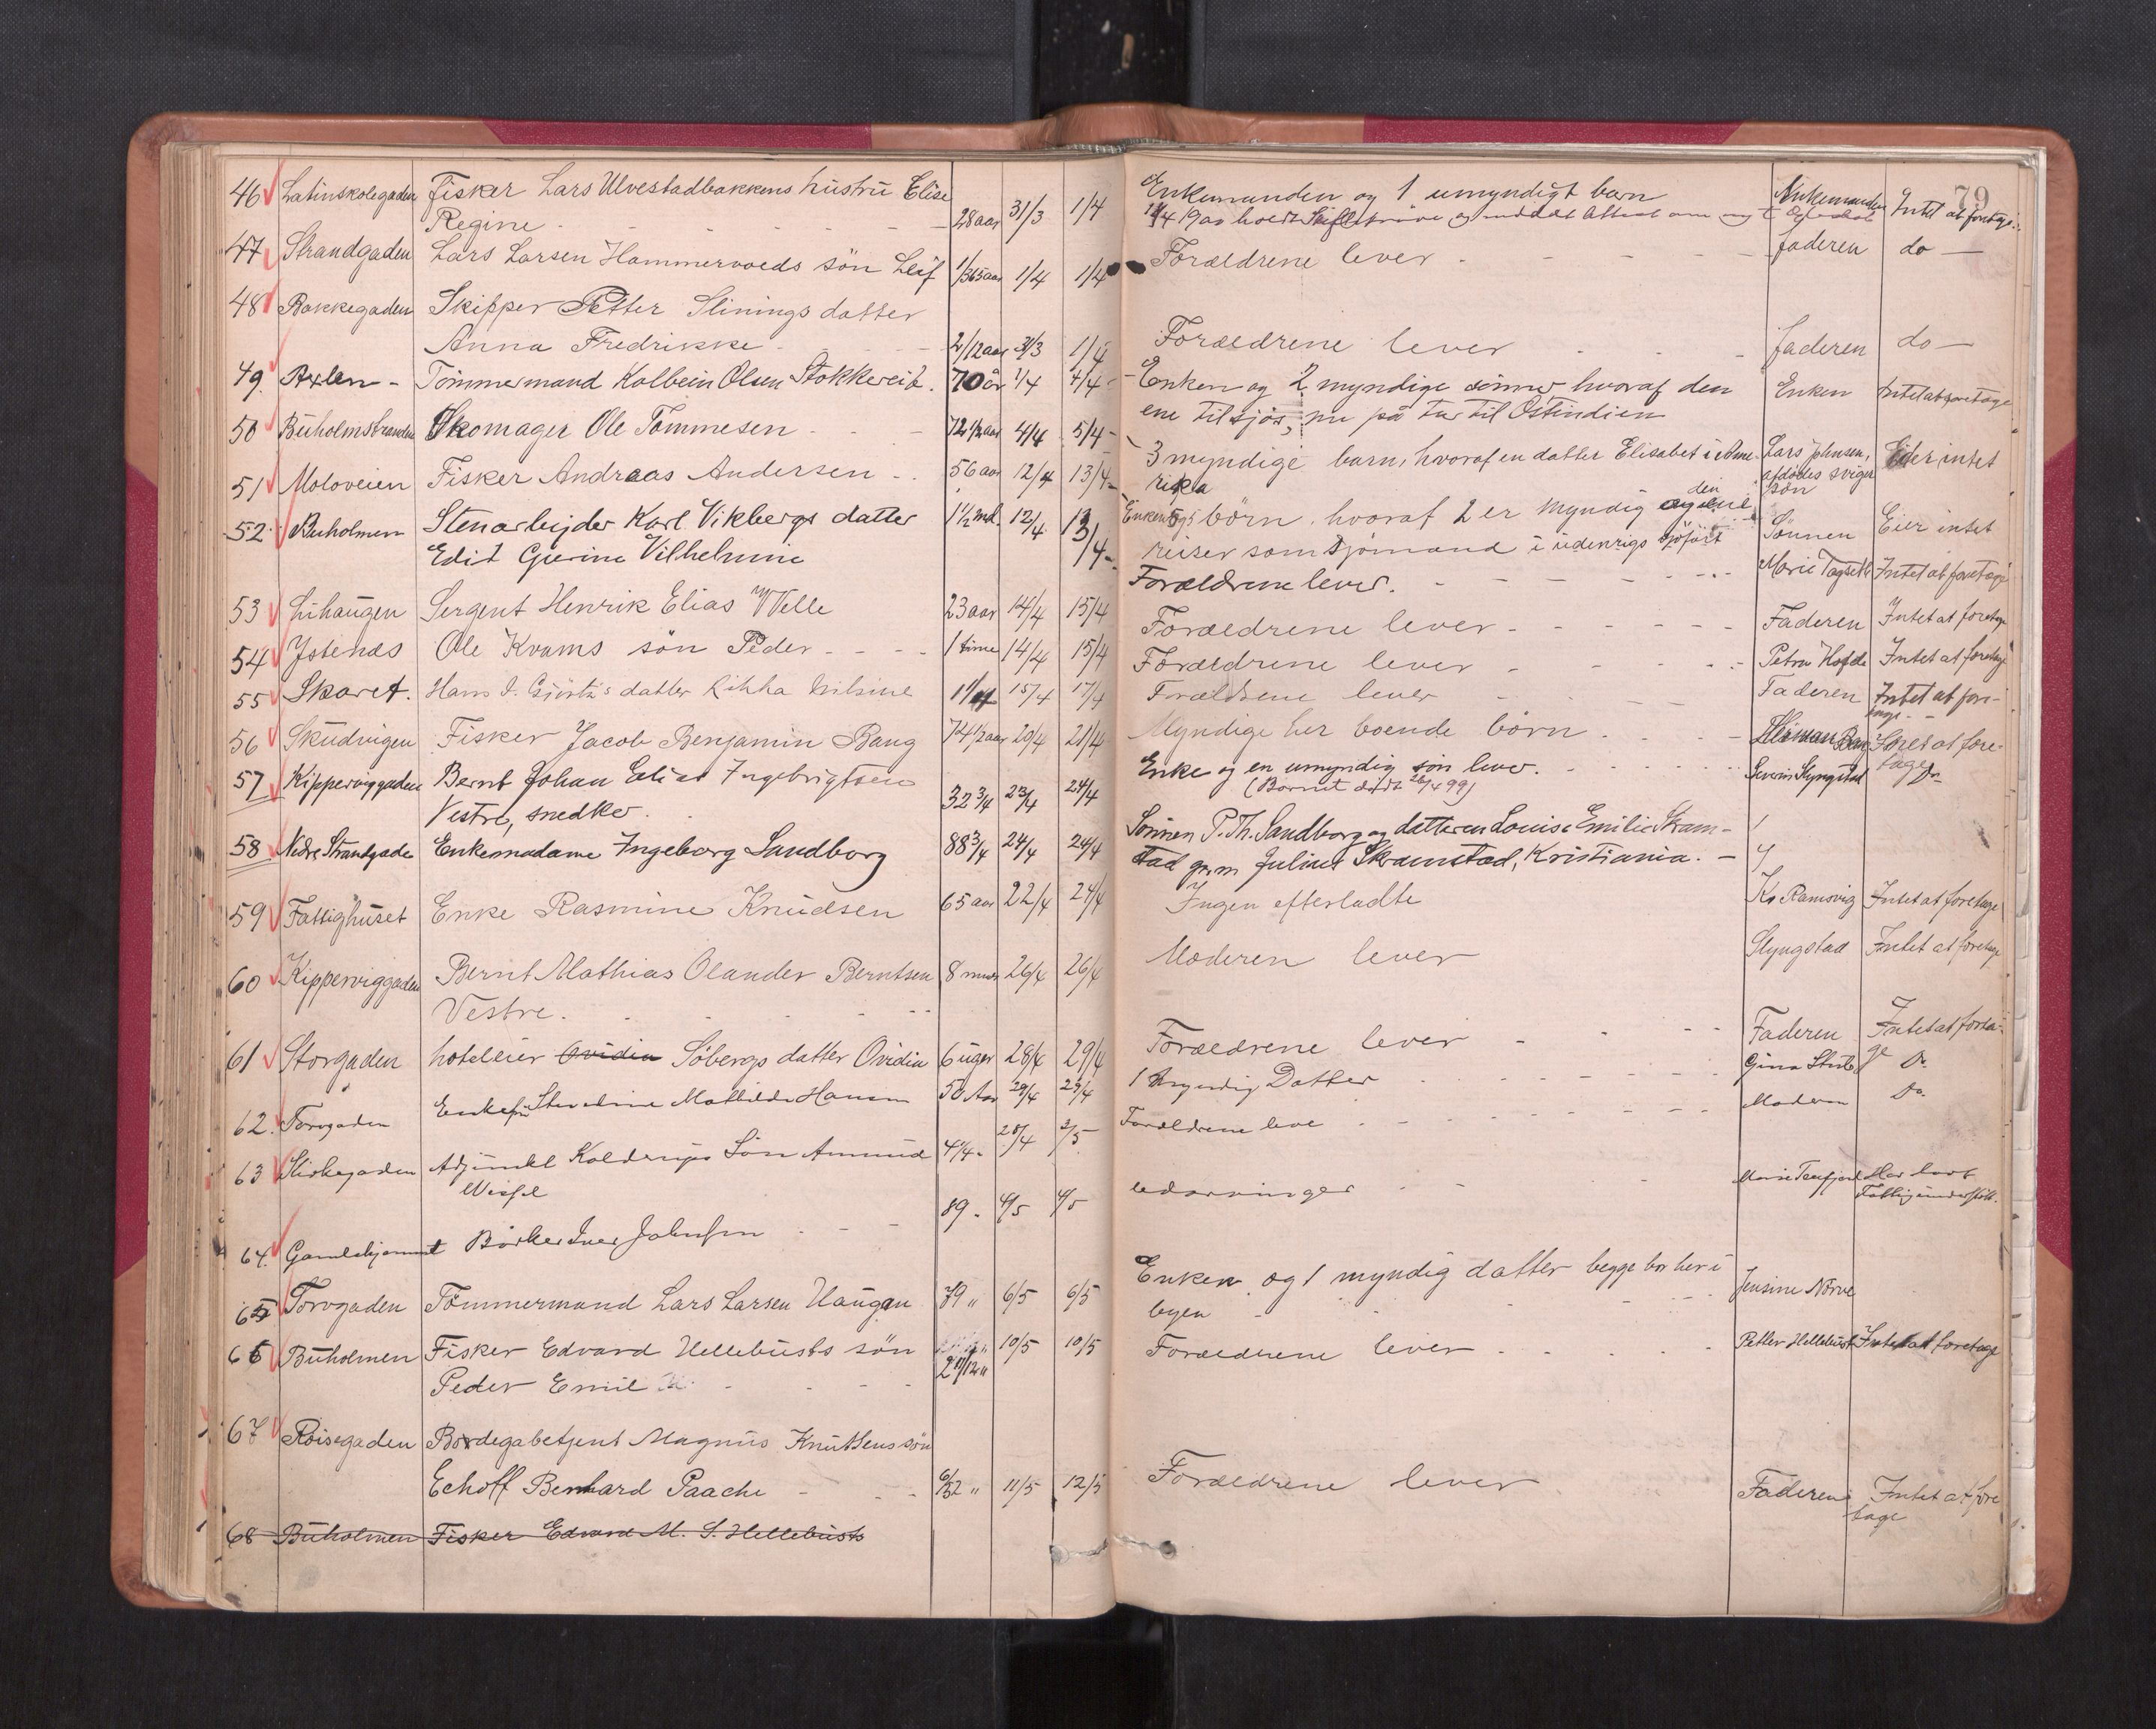 79
46 Latinskolegaden Fisker Lars Ulvestadbakkens hustru Elise
Regine 28 aar 31/3 1/4
Enkemanden og 1 umyndigt barn Enkemanden Intet at foretage
47 Strandgaden Lars Larsen Hammervolds sön Leif 1/365 aar 1/4 1/4 Forældrene lever faderen do
48 Bakkegaden Skipper Petter Slinings datter
Anna Fredrikke 2/12 aar 31/3 1/4 Forældrene lever faderen do
49 Axlen Tömmermand Kolbein Olsen Stokkereit 70 år 1/4 4/4 Enken og 2 myndige sönner, hvoraf den Enken Intet at foretage
ene tilsjös, nu på tur til Ostindien
50 Buholmstranden Skomager Ole Tommesen 72 1/2 aar 4/4 5/4 3 myndige barn, hvoraf en datter Elisabet i Ame- Lars Johnsen, Eier intet
rika afdödes sviger
sön
51 Moloveien Fisker Andreas Andersen 56 aar 12/4 13/4 Enken og 5 börn. hvoraf 2 er myndig den ene Sönnen Eier intet
reiser som sjömand i udenrigs sjöfart
52 Buholmen Stenarbejder Karl Vikbergs datter 1 1/2 md. 12/4 13/4
Edit Gurine Vilhelmine Forældrene lever. Marie Tagseth Intet at foretage
53 Lihaugen Sergent Henrik Elias Welle 23 aar 14/4 15/4 Forældrene lever Faderen Intet at foretage
54 Ystenæs Ole Kvams sön Peder 1 time 14/4 15/4 Forældrene lever Petra Hofde Intet at foretage
55 Skaret. Hans I. Gjörtz's datter Rikka Nilsine 15/4 17/4 Forældrene lever Faderen Intet at fore-
tage
56 Skudvigen Fisker Jacob Benjamin Bang 74 1/2 aar 20/4 21/4 Myndige her boende börn Herman Bang Intet at fore-
tage
57 Kipperviggaden Bernt Johan Elias Ingebrigtsen
Vestre, snedker. 32 3/4 23/4 24/4 Enke og en umyndig sön lever. Severin Slyngstad Do
(Barnet döde 26/4 99)
58 Nedre Strandgade Enkemadame Ingeborg Sandborg 88 3/4 24/4 24/4 Sönnen P. Th. Sandborg og datteren Louise Emilie Skram-
stad gm. m Julius Skramstad, Kristiania.
59 Fattighuset Enke Rasmine Knudsen 65 aar 22/4 24/4 Ingen efterladte K. Ramsvig Intet at foretage
60 Kipperviggaden Bernt Mathias Olander Berntsen 8 mndr 26/4 26/4 Moderen lever Slyngstad Intet at foretage
Vestre.
61 Storgaden hoteleier Ovidia Söbergs datter Ovidia 6 uger 28/4 29/4 Forældrene lever Faderen Intet at foreta-
ge
62. Torvgaden Enkefru Mathilde Hansen 50 Aar 29/4 29/4 1 Myndig Datter Gina Do.
63 Kirkegaden Adjunkt Koldrups Sön Amund 4 1/4 28/4 2/5 Forældrene leve Moderen Do.
64. Gamlehjemmet Böcker Iver Johnsen 89 4/5 4/5 Udarvinger Marie Har havt
Fattigunderstött.
65 Torvgaden Tömmermand Lars Larsen Haugen 79 " 6/5 6/5 Enken og 1 myndig datter begge bor her i Jensine Nörve
byen
66 Buholmen Fisker Edvard Hellebusts sön 2 11/12 " 10/5 10/5 Forældrene lever Petter Hellebust Intet at foretage
Peder Emil
67 Röisegaden Bordegabetjent Magnus Knutsens sön
Echoff Bernhard Paache 6/52 " 11/5 12/5 Forældrene lever Faderen Intet at fore
tage
68 Buholmen Fisker Edvard M. S. Hellebusts